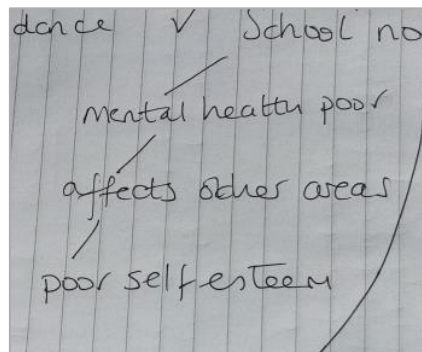 dance V School no
mental health poor
affects other areas
poor self esteem